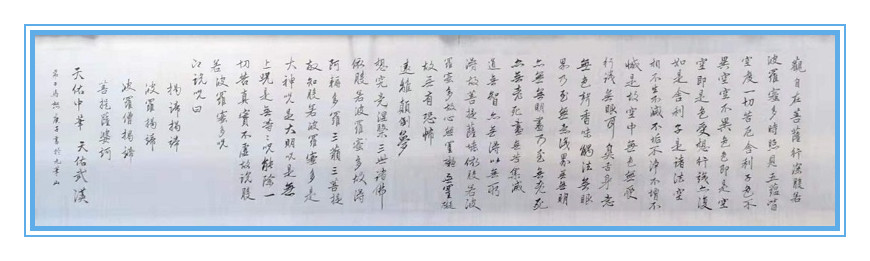 觀自在菩薩行深般若
波羅蜜多時照見五蘊皆
空度一切苦厄舍利子色不
異空空不異色色即是空
空即是色受想行識亦復
如是舍利子是諸法空
相不生不滅不垢不淨不增不
減是故空中無色無受
行識無眼耳鼻舌身意
無色聲香味觸法無眼
界乃至無意識界無無明
亦無無明盡乃至無老死
亦無老死盡無苦集滅
道無智亦無得以無所
得故菩提薩埵依般若波
羅蜜多故心無罣礙無罣礙
故無有恐怖
遠離顛倒夢
想究竟涅槃三世諸佛
依般若波羅蜜多故得
阿耨多羅三藐三菩提
故知般若波羅蜜多是
大神咒是大明咒是無
上咒是無等等咒能除一
切苦真實不虛故說般
若波羅蜜多咒
即說咒曰
揭諦揭諦
波羅揭諦
波羅僧揭諦
菩提薩婆訶
天佑中華 天佑武漢
庚子 書於九華山